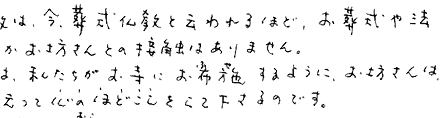 は、今、葬式仏教と云われるほど、お葬式や法
かお坊さんとの接触はありません。
は、私たちがお寺にお布施するように、お坊さんは
云って仏のほどこしをして下さるのです。